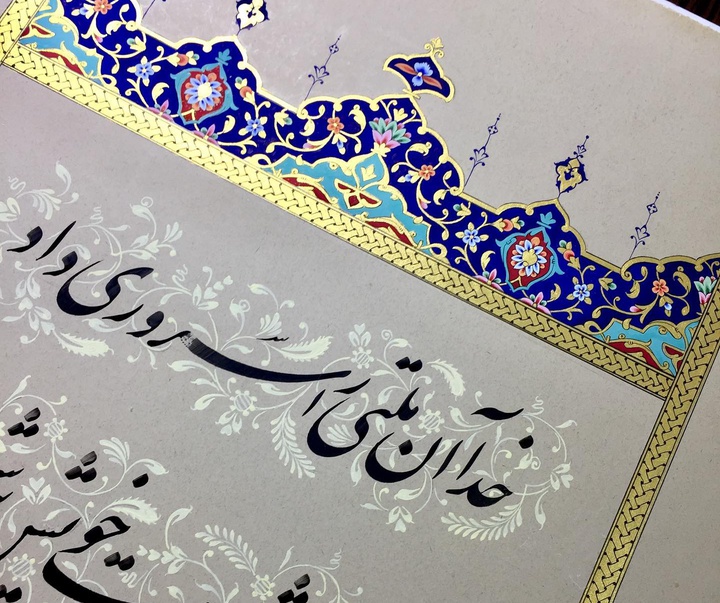 خدا آن ملتی را سروری داد
خویش